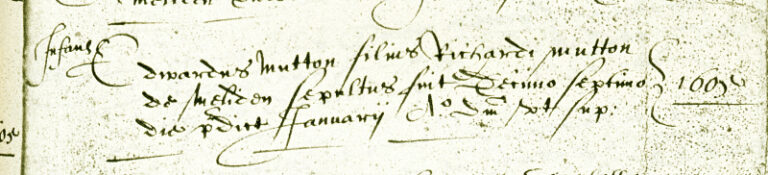 Infans Edwardus Mutton filius Richardi mutton
de Meliden sepultus fuit Decimo septimo 1605
die p̄dict Januarij Ao. Dm̄ vt sup: